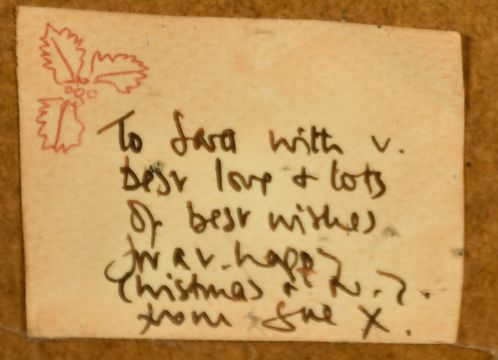 To Sara with v.
best love & lots
of best wishes
for a v. happy
Christmas & N. Y.
from Sue X.